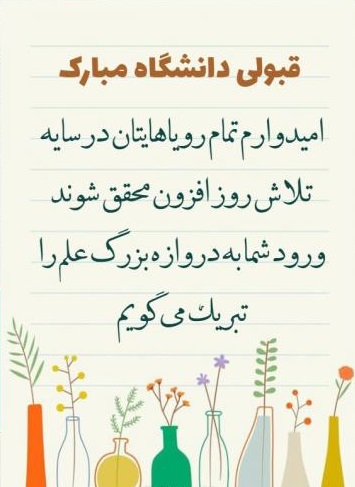 قبولی دانشگاه مبارک
امیدوارم تمام رویاهایتان در سایه
تلاش روز افزون محقق شوند
ورود شما به دروازه بزرگ علم را
تبریک می گویم